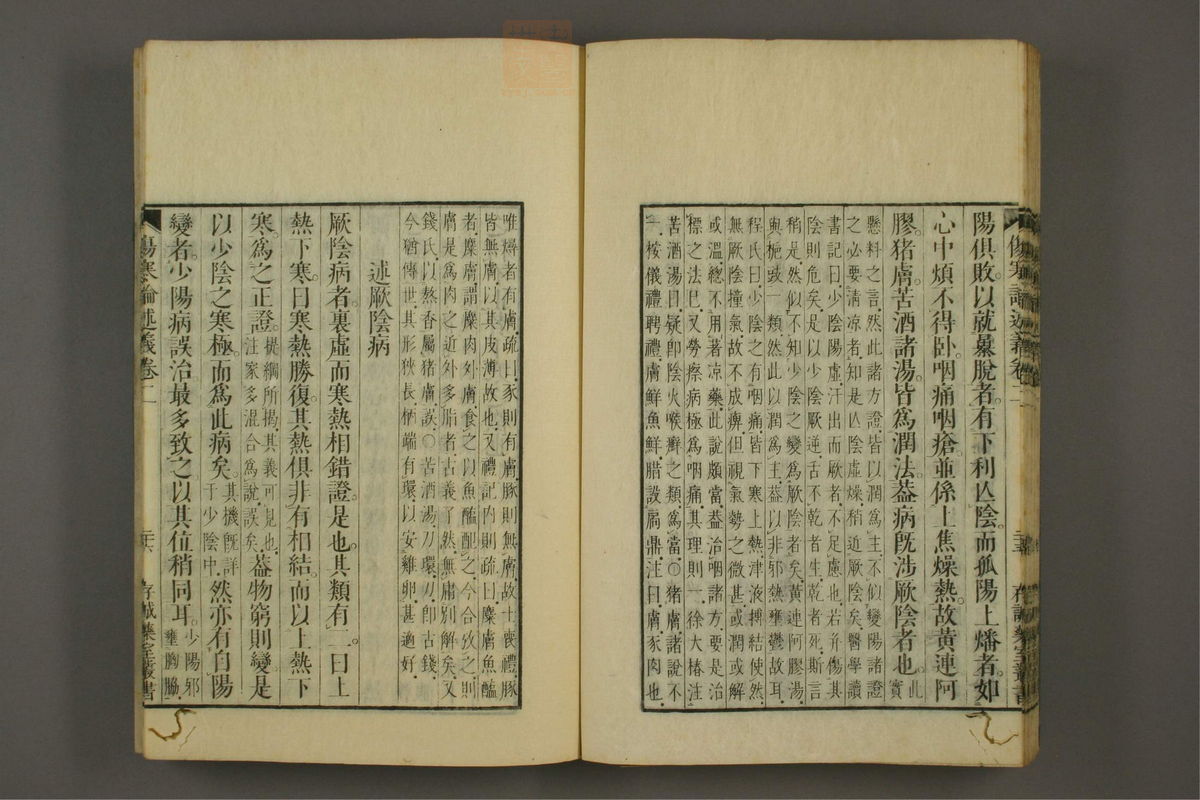 陽俱敗以就暴脫者有下利亾陰而孤陽上燔者如
心中煩不得臥咽痛咽瘡並係上焦燥熱故黃連阿
膠猪膚苦酒諸湯皆爲潤法葢病既涉厥陰者也此實
懸料之言然此諸方證皆以潤爲主不似變陽諸證
之必要淸凉者知是亾陰虛燥稍近厥陰矣醫學讀
書記曰少陰陽虛汗出而厥者不足慮也若并傷其
陰則危矣是以少陰厥逆舌不乾者生乾者死斯言
稍是然似不知少陰之變爲厥陰者矣黃連阿膠湯
與梔豉一類然此以潤爲主葢以非邪熱壅鬱故耳
程氏曰少陰之有咽痛皆下寒上熱津液搏結使然
無厥陰撞氣故不成痹但視氣勢之微甚或潤或解
或溫總不用著凉藥此說頗當葢治咽諸方要是治
標之法已又勞瘵病極爲咽痛其理則一徐大椿注
苦酒湯曰疑卽陰火喉癬之類爲當○猪膚諸說不
一桉儀禮聘禮膚鮮魚鮮腊設扃鼎注曰膚豕肉也
唯燖者有膚疏曰豕則有膚豚則無膚故士喪禮豚
皆無膚以其皮薄故也又禮記內則疏曰麋膚魚醢
者麋膚謂麋肉外膚食之以魚醢配之今合攷之則
膚是爲肉之近外多脂者古義了然無庸別解矣又
錢氏以熬香屬猪膚誤○苦酒湯刀環刀卽古錢
今猶傳世其形狹長柄端有環以安雞卵甚適好
述厥陰病
厥陰病者裏虛而寒熱相錯證是也其類有二曰上
熱下寒曰寒熱勝復其熱俱非有相結而以上熱下
寒爲之正證提綱所揭其義可見也注家多混合爲說誤矣葢物窮則變是
以少陰之寒極而爲此病矣其機既詳于少陰中然亦有自陽
變者少陽病誤治最多致之以其位稍同耳少陽邪壅胸脇
傷寒論述義卷二
二十六
存誠藥室叢書